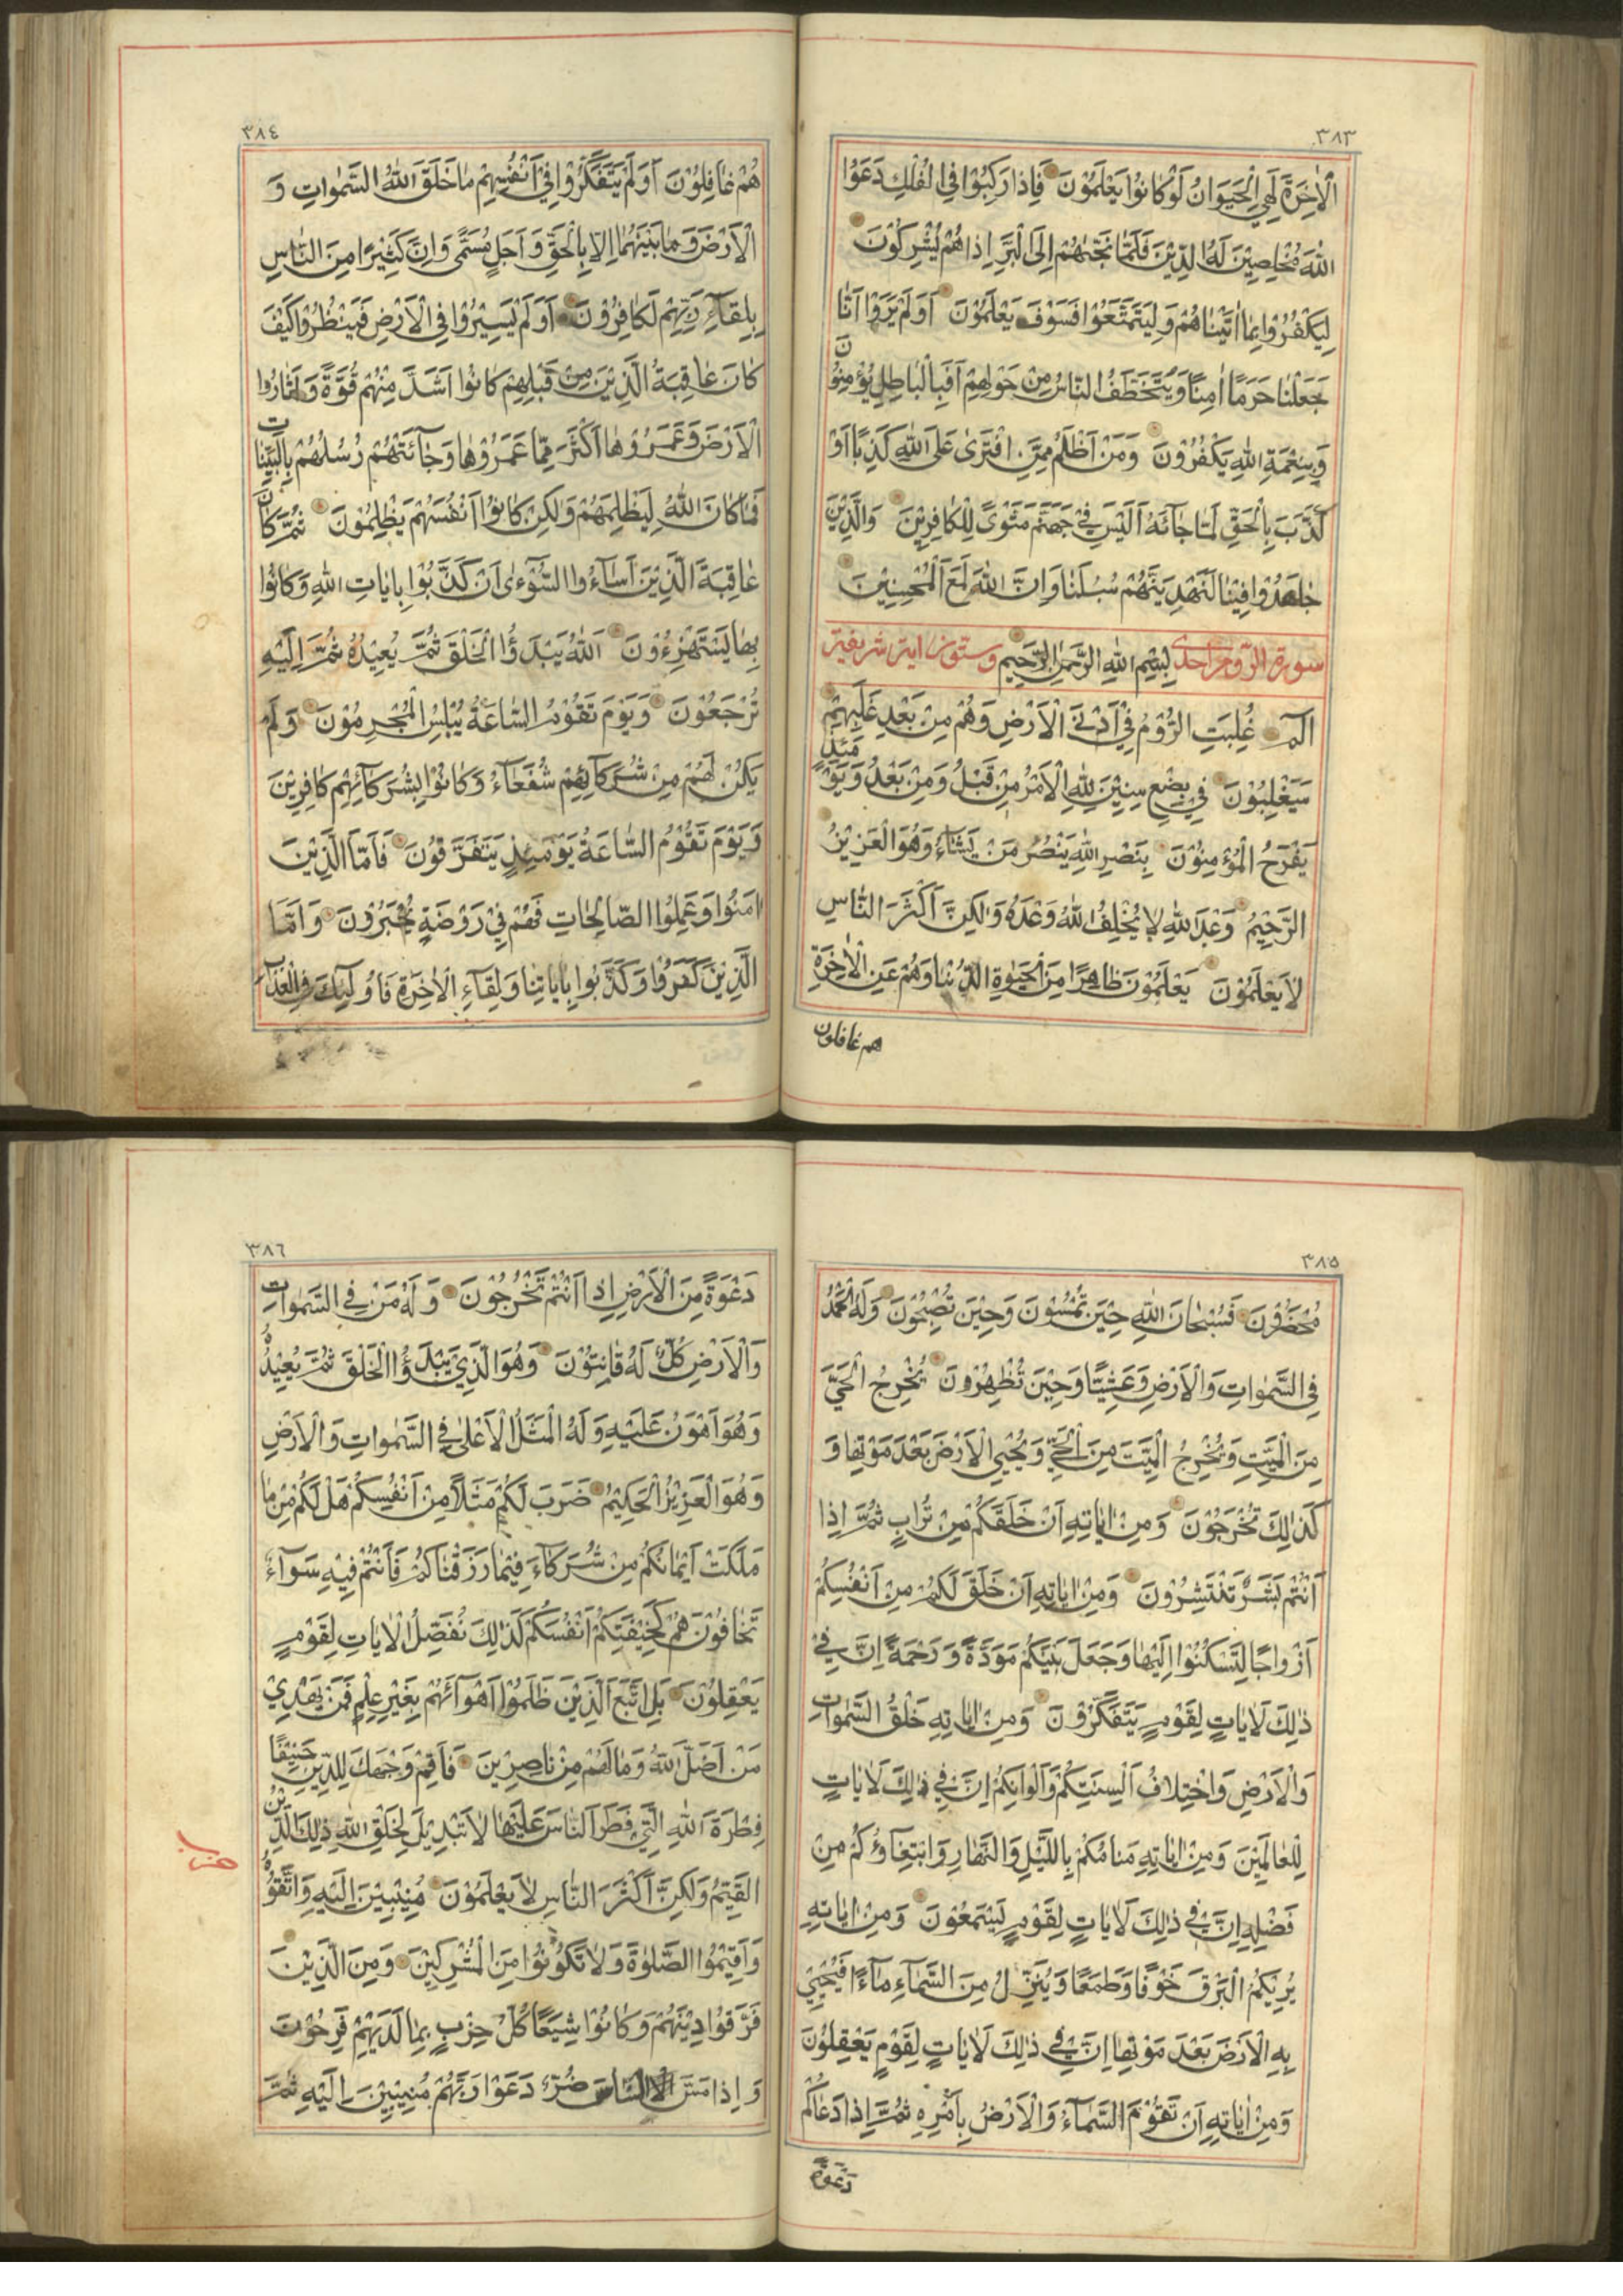 ٣٨٣
الْاٰخِرَةَ لَهِيَ الْحَيَوَانُ لَوْ كَانُوْا يَعْلَمُوْنَ فَاِذَا رَكِبُوْا فِي الْفُلْكِ دَعَوُا
اللّٰهَ مُخْلِصِيْنَ لَهُ الدِّيْنَ فَلَمَّا نَجّٰىهُمْ اِلَى الْبَرِّ اِذَا هُمْ يُشْرِكُوْنَ
لِيَكْفُرُوْا بِمَا اٰتَيْنَاهُمْ وَلِيَتَمَتَّعُوْا فَسَوْفَ يَعْلَمُوْنَ اَوَلَمْ يَرَوْا اَنَّا
جَعَلْنَا حَرَمًا اٰمِنًا وَيُتَخَطَّفُ النَّاسُ مِنْ حَوْلِهِمْ اَفَبِالْبَاطِلِ يُؤْمِنُوْنَ
وَبِنِعْمَةِ اللّٰهِ يَكْفُرُوْنَ وَمَنْ اَظْلَمُ مِمَّنِ افْتَرٰى عَلَى اللّٰهِ كَذِبًا اَوْ
كَذَّبَ بِالْحَقِّ لَمَّا جَائَهُ اَلَيْسَ فِيْ جَهَنَّمَ مَثْوًى لِلْكَافِرِيْنَ وَالَّذِيْنَ
جَاهَدُوْا فِيْنَا لَنَهْدِيَنَّهُمْ سُبُلَنَا وَاِنَّ اللّٰهَ لَمَعَ الْمُحْسِنِيْنَ
سورة الروم احدى بِسْمِ اللّٰهِ الرَّحْمٰنِ الرَّحِيْمِ وستون ايت شريفة
الٓمٓ غُلِبَتِ الرُّوْمُ فِيْ اَدْنَى الْاَرْضِ وَهُمْ مِنْ بَعْدِ غَلَبِهِمْ
سَيَغْلِبُوْنَ فِيْ بِضْعِ سِنِيْنَ لِلّٰهِ الْاَمْرُ مِنْ قَبْلُ وَمِنْ بَعْدُ وَيَوْمَئِذٍ
يَفْرَحُ الْمُؤْمِنُوْنَ بِنَصْرِ اللّٰهِ يَنْصُرُ مَنْ يَشَاءُ وَهُوَ الْعَزِيْزُ
الرَّحِيْمُ وَعْدَ اللّٰهِ لَا يُخْلِفُ اللّٰهُ وَعْدَهُ وَلٰكِنَّ اَكْثَرَ النَّاسِ
لَا يَعْلَمُوْنَ يَعْلَمُوْنَ ظَاهِرًا مِنَ الْحَيٰوةِ الدُّنْيَا وَهُمْ عَنِ الْاٰخِرَةِ
هم غافلون
٣٨٤
هُمْ غَافِلُوْنَ اَوَلَمْ يَتَفَكَّرُوْا فِيْ اَنْفُسِهِمْ مَا خَلَقَ اللّٰهُ السَّمٰوَاتِ وَ
الْاَرْضَ وَمَا بَيْنَهُمَا اِلَّا بِالْحَقِّ وَاَجَلٍ مُسَمًّى وَاِنَّ كَثِيْرًا مِنَ النَّاسِ
بِلِقَآءِ رَبِّهِمْ لَكَافِرُوْنَ اَوَلَمْ يَسِيْرُوْا فِي الْاَرْضِ فَيَنْظُرُوْا كَيْفَ
كَانَ عَاقِبَةُ الَّذِيْنَ مِنْ قَبْلِهِمْ كَانُوْا اَشَدَّ مِنْهُمْ قُوَّةً وَاَثَارُوا
الْاَرْضَ وَعَمَرُوْهَا اَكْثَرَ مِمَّا عَمَرُوْهَا وَجَآئَتْهُمْ رُسُلُهُمْ بِالْبَيِّنَاتِ
فَمَا كَانَ اللّٰهُ لِيَظْلِمَهُمْ وَلٰكِنْ كَانُوْا اَنْفُسَهُمْ يَظْلِمُوْنَ ثُمَّ كَانَ
عَاقِبَةَ الَّذِيْنَ اَسَآءُوا السُّوْٓءٰى اَنْ كَذَّبُوْا بِاٰيَاتِ اللّٰهِ وَكَانُوْا
بِهَا يَسْتَهْزِءُوْنَ اَللّٰهُ يَبْدَؤُا الْخَلْقَ ثُمَّ يُعِيْدُهُ ثُمَّ اِلَيْهِ
تُرْجَعُوْنَ وَيَوْمَ تَقُوْمُ السَّاعَةُ يُبْلِسُ الْمُجْرِمُوْنَ وَلَمْ
يَكُنْ لَهُمْ مِنْ شُرَكَآئِهِمْ شُفَعَآءُ وَكَانُوْا بِشُرَكَآئِهِمْ كَافِرِيْنَ
وَيَوْمَ تَقُوْمُ السَّاعَةُ يَوْمَئِذٍ يَتَفَرَّقُوْنَ فَاَمَّا الَّذِيْنَ
اٰمَنُوْا وَعَمِلُوا الصَّالِحَاتِ فَهُمْ فِيْ رَوْضَةٍ يُحْبَرُوْنَ وَاَمَّا
الَّذِيْنَ كَفَرُوْا وَكَذَّبُوْا بِاٰيَاتِنَا وَلِقَآءِ الْاٰخِرَةِ فَاُولٰٓئِكَ فِي الْعَذَابِ
٣٨٥
مُحْضَرُوْنَ فَسُبْحَانَ اللّٰهِ حِيْنَ تُمْسُوْنَ وَحِيْنَ تُصْبِحُوْنَ وَلَهُ الْحَمْدُ
فِي السَّمٰوَاتِ وَالْاَرْضِ وَعَشِيًّا وَحِيْنَ تُظْهِرُوْنَ يُخْرِجُ الْحَيَّ
مِنَ الْمَيِّتِ وَيُخْرِجُ الْمَيِّتَ مِنَ الْحَيِّ وَيُحْيِي الْاَرْضَ بَعْدَ مَوْتِهَا وَ
كَذٰلِكَ تُخْرَجُوْنَ وَمِنْ اٰيَاتِهِ اَنْ خَلَقَكُمْ مِنْ تُرَابٍ ثُمَّ اِذَا
اَنْتُمْ بَشَرٌ تَنْتَشِرُوْنَ وَمِنْ اٰيَاتِهِ اَنْ خَلَقَ لَكُمْ مِنْ اَنْفُسِكُمْ
اَزْوَاجًا لِتَسْكُنُوْا اِلَيْهَا وَجَعَلَ بَيْنَكُمْ مَوَدَّةً وَرَحْمَةً اِنَّ فِيْ
ذٰلِكَ لَاٰيَاتٍ لِقَوْمٍ يَتَفَكَّرُوْنَ وَمِنْ اٰيَاتِهِ خَلْقُ السَّمٰوَاتِ
وَالْاَرْضِ وَاخْتِلَافُ اَلْسِنَتِكُمْ وَاَلْوَانِكُمْ اِنَّ فِيْ ذٰلِكَ لَاٰيَاتٍ
لِلْعَالِمِيْنَ وَمِنْ اٰيَاتِهِ مَنَامُكُمْ بِاللَّيْلِ وَالنَّهَارِ وَابْتِغَآؤُكُمْ مِنْ
فَضْلِهِ اِنَّ فِيْ ذٰلِكَ لَاٰيَاتٍ لِقَوْمٍ يَسْمَعُوْنَ وَمِنْ اٰيَاتِهِ
يُرِيْكُمُ الْبَرْقَ خَوْفًا وَطَمَعًا وَيُنَزِّلُ مِنَ السَّمَآءِ مَآءً فَيُحْيِيْ
بِهِ الْاَرْضَ بَعْدَ مَوْتِهَا اِنَّ فِيْ ذٰلِكَ لَاٰيَاتٍ لِقَوْمٍ يَعْقِلُوْنَ
وَمِنْ اٰيَاتِهِ اَنْ تَقُوْمَ السَّمَآءُ وَالْاَرْضُ بِاَمْرِهِ ثُمَّ اِذَا دَعَاكُمْ
دَعْوَةً
٣٨٦
دَعْوَةً مِنَ الْاَرْضِ اِذَا اَنْتُمْ تَخْرُجُوْنَ وَلَهُ مَنْ فِي السَّمٰوَاتِ
وَالْاَرْضِ كُلٌّ لَهُ قَانِتُوْنَ وَهُوَ الَّذِيْ يَبْدَؤُا الْخَلْقَ ثُمَّ يُعِيْدُهُ
وَهُوَ اَهْوَنُ عَلَيْهِ وَلَهُ الْمَثَلُ الْاَعْلٰى فِي السَّمٰوَاتِ وَالْاَرْضِ
وَهُوَ الْعَزِيْزُ الْحَكِيْمُ ضَرَبَ لَكُمْ مَثَلًا مِنْ اَنْفُسِكُمْ هَلْ لَكُمْ مِنْ مَا
مَلَكَتْ اَيْمَانُكُمْ مِنْ شُرَكَآءَ فِيْمَا رَزَقْنَاكُمْ فَاَنْتُمْ فِيْهِ سَوَآءٌ
تَخَافُوْنَهُمْ كَخِيْفَتِكُمْ اَنْفُسَكُمْ كَذٰلِكَ نُفَصِّلُ الْاٰيَاتِ لِقَوْمٍ
يَعْقِلُوْنَ بَلِ اتَّبَعَ الَّذِيْنَ ظَلَمُوْا اَهْوَآئَهُمْ بِغَيْرِ عِلْمٍ فَمَنْ يَهْدِيْ
مَنْ اَضَلَّ اللّٰهُ وَمَا لَهُمْ مِنْ نَاصِرِيْنَ فَاَقِمْ وَجْهَكَ لِلدِّيْنِ حَنِيْفًا
فِطْرَةَ اللّٰهِ الَّتِيْ فَطَرَ النَّاسَ عَلَيْهَا لَا تَبْدِيْلَ لِخَلْقِ اللّٰهِ ذٰلِكَ الدِّيْنُ
حزب
الْقَيِّمُ وَلٰكِنَّ اَكْثَرَ النَّاسِ لَا يَعْلَمُوْنَ مُنِيْبِيْنَ اِلَيْهِ وَاتَّقُوْهُ
وَاَقِيْمُوا الصَّلٰوةَ وَلَا تَكُوْنُوْا مِنَ الْمُشْرِكِيْنَ وَمِنَ الَّذِيْنَ
فَرَّقُوْا دِيْنَهُمْ وَكَانُوْا شِيَعًا كُلُّ حِزْبٍ بِمَا لَدَيْهِمْ فَرِحُوْنَ
وَاِذَا مَسَّ النَّاسَ ضُرٌّ دَعَوْا رَبَّهُمْ مُنِيْبِيْنَ اِلَيْهِ ثُمَّ